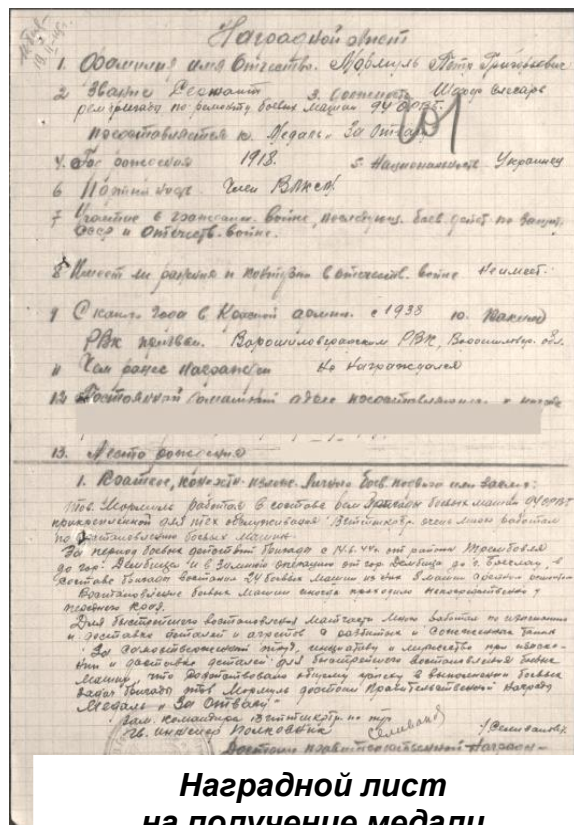 Наградной лист
1. Фамилия имя Отчество. Мормуль Петр Григорьевич
2 Звание Сержант 3. Должность Шофер слесарь
рембригады по ремонту боевых машин 94 ОРВБ.
представляется к Медаль „За Отвагу“
4. Год рождения 1918. 5. Национальность Украинец
6 Партийность Член ВЛКСМ.
7 Участие в граждан. войне, последующ. боев. действ. по защит.
СССР и Отечеств. войне.
8 Имеет ли ранения и контузии в отечеств. войне Не имеет.
9 С какого года в Красной армии. с 1938 10. Каким
РВК призван. Ворошиловградском РВК, Ворошиловгр. обл.
11 Чем ранее награжден Не награждался
12 Постоянный домашний адрес представляемого к награде
13. Место рождения
1. Краткое, конкретн. излож. личного боев. подвига или заслуг:
Тов. Мормуль работая в составе рем бригады боевых машин 94 ОРВБ
прикрепленной для тех обслуживания очень много работал
по восстановлению боевых машин.
За период боевых действий бригады с 14.6.44г. от района Трембовля
до гор. Дембица и в Зимнюю операцию от гор. Дембица до г. Бреслау, в
составе бригады восстановил 24 боевых машин из них 8 машин средним ремонтом
Восстановление боевых машин иногда проходило непосредственно у
переднего края.
Для быстрейшего восстановления матчасти много работал по изысканию
и доставке деталей и агрегатов с разбитых и сожженных танков
За самоотверженный труд, инициативу и мужество при изыска-
нии и доставке деталей для быстрейшего восстановления боевых
машин, что содействовало общему успеху в выполнении боевых
задач бригады тов Мормуль достоин Правительственной Награды
Медаль „За Отвагу“
Зам. командира по тех
Гв. инженер Полковник Селиванов /Селиванов/.
Достоин правительственной Награды
Наградной лист
на получение медали